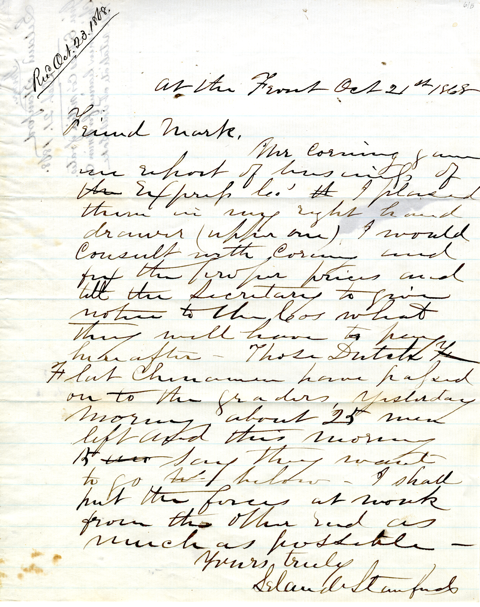 Recd Oct. 23. 1868.
At the Front Oct 21st 1868
Friend Mark,
Mr Corning gave
me report of business of
the Express Co's I placed
them in my right hand
drawer (upper one) I would
consult with and
fix the proper prices and
tell the Secretary to give
notice to the Cos what
they will have to pay
hereafter - Those Dutch
Flat Chinamen have passed
on to the graders, yesterday
morning about 25 men
left and this morning
15 say they want
to go below - I shall
put the forces at work
from the other end as
much as possible -
Yours truly
Leland Stanford